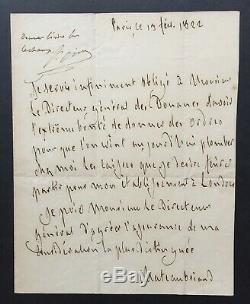 Paris, ce 19 fév. 1822
Je serois infiniment obligé à Monsieur
le Directeur général des Douanes d'avoir
l'extrême bonté de donner des ordres
pour que l'on vint aujourd'hui plomber
chez moi les caisses que je desire faire
partir pour mon établissement à Londres
Je prie Monsieur le Directeur
général d'agréer l'assurance de ma
considération la plus distinguée
Chateaubriand